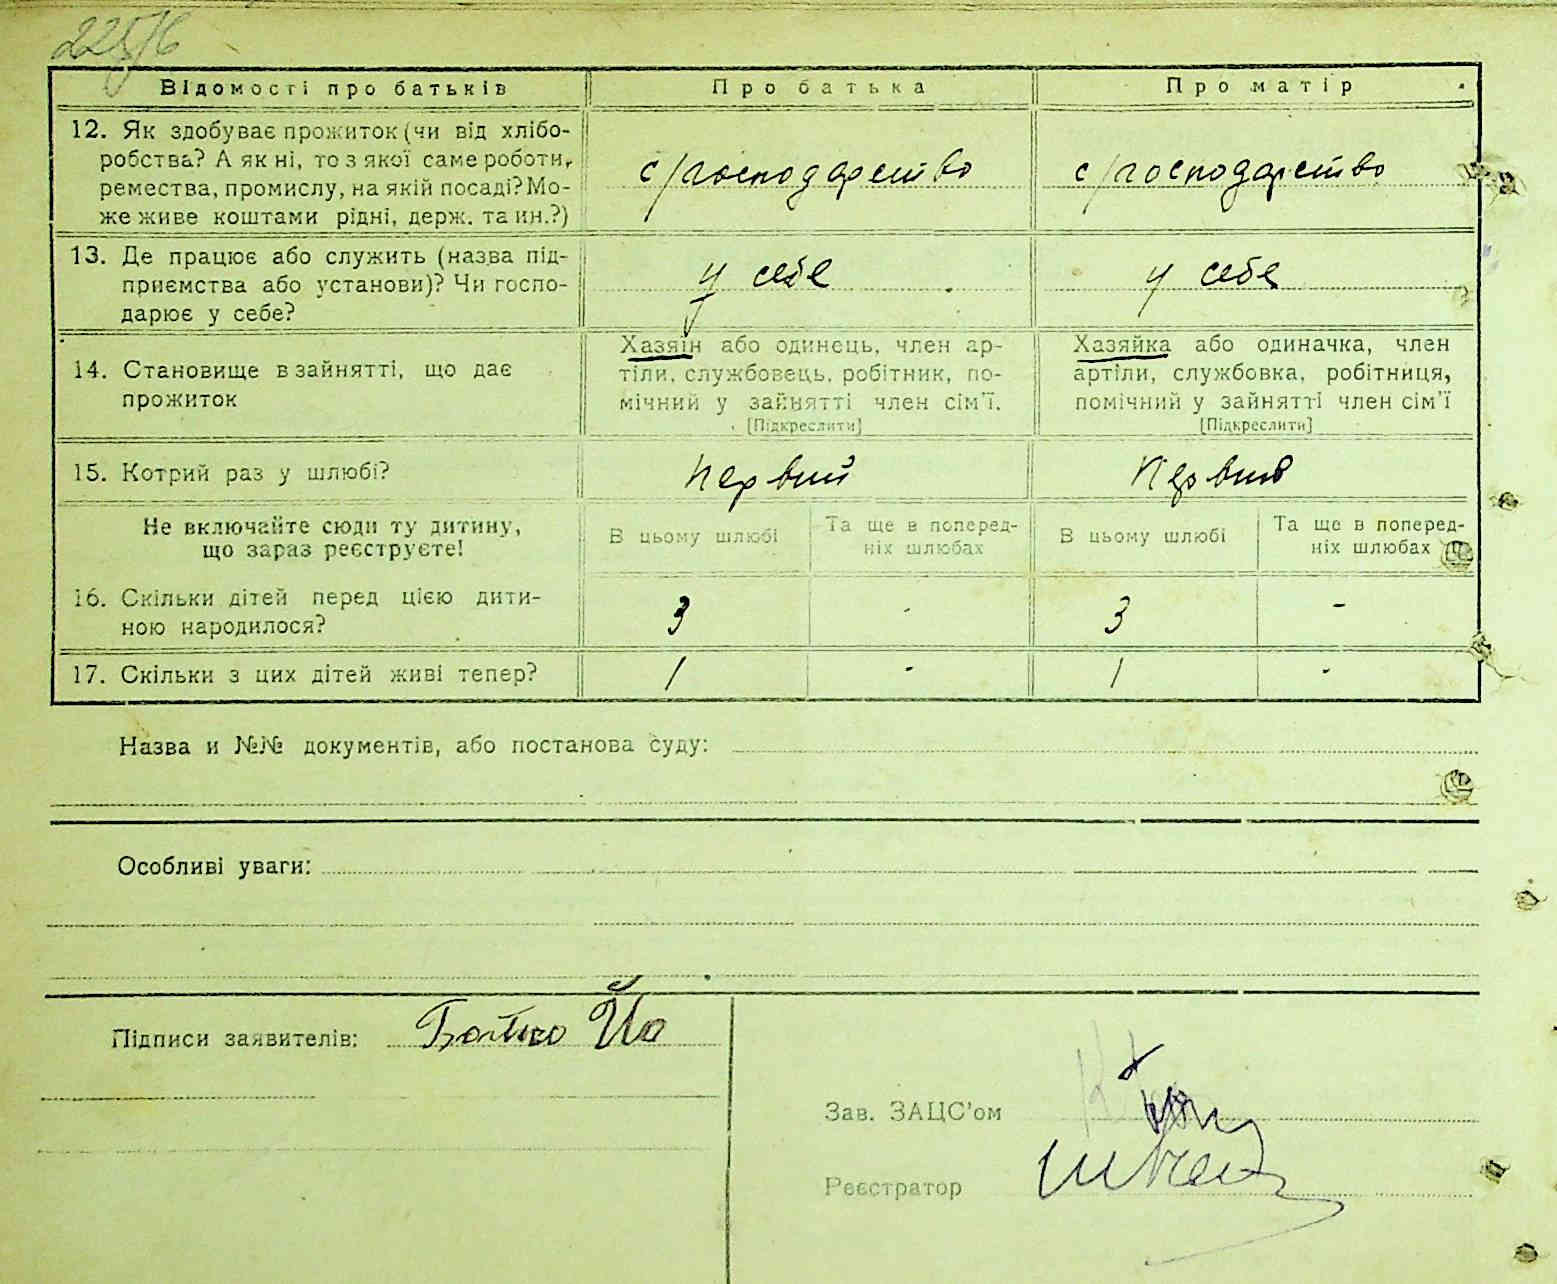 225/6
Відомості про батьків Про батька Про матір
12. Як здобуває прожиток (чи від хлібо-
робства? А як ні, то з якої саме роботи,
ремества, промислу, на якій посаді? Мо-
же живе коштами рідні, держ. та ин.?)
с/господарство с/господарство
13. Де працює або служить (назва під-
приємства або установи)? Чи госпо-
дарює у себе?
у себе у себе
14. Становище в зайнятті, що дає
прожиток
Хазяїн або одинець, член ар-
тіли, службовець, робітник, по-
мічний у зайнятті член сім'ї.
[Підкреслити]
Хазяйка або одиначка, член
артіли, службовка, робітниця,
помічний у зайнятті член сім'ї
[Підкреслити]
15. Котрий раз у шлюбі? первий первий
Не включайте сюди ту дитину,
що зараз реєструєте!
В цьому шлюбі
Та ще в поперед-
ніх шлюбах
В цьому шлюбі
Та ще в поперед-
ніх шлюбах
16. Скільки дітей перед цією дити-
ною народилося?
3 - 3 -
17. Скільки з цих дітей живі тепер? 1 - 1 -
Назва и №№ документів, або постанова суду:
Особливі уваги:
Підписи заявителів:
Зав. ЗАЦС'ом
Реєстратор